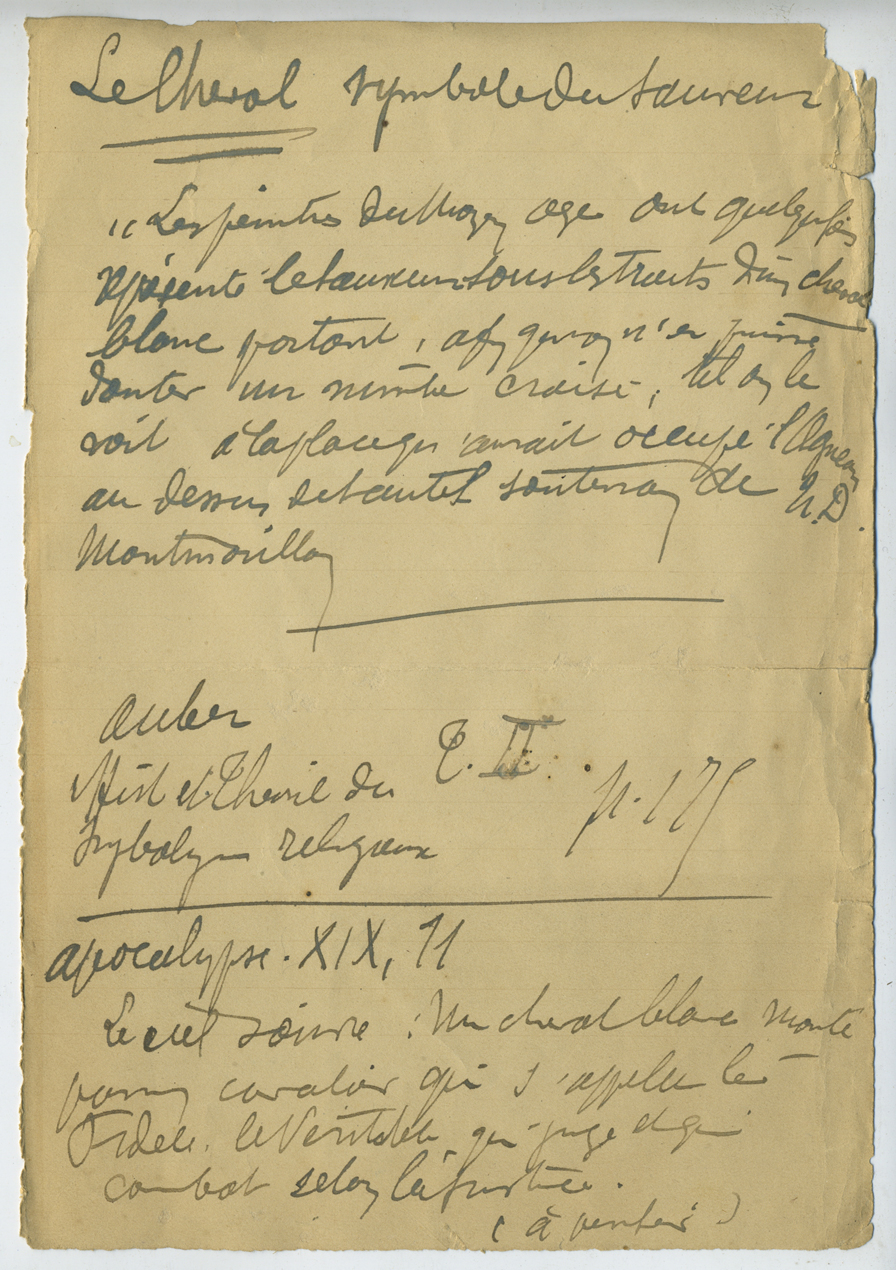 Le Cheval symbole du Sauveur
"Les peintres du Moyen age ont quelquefois
représenté le Sauveur sous les traits d'un cheval
blanc portant, afin qu'on n'en puisse
douter un nimbe croisé; tel on le
voit à la place qu'aurait occupé l'Agneau
au dessus de l'autel souterrain de N.D.
Montmorillon
Auber
Hist et Théorie du T. II. p. 175
Symbolisme religieux
Apocalypse. XIX, 11
Le ciel s'ouvre : Un cheval blanc monté
par un cavalier qui s'appelle le
Fidèle, le Véritable qui juge et qui
combat selon la justice.
( à )